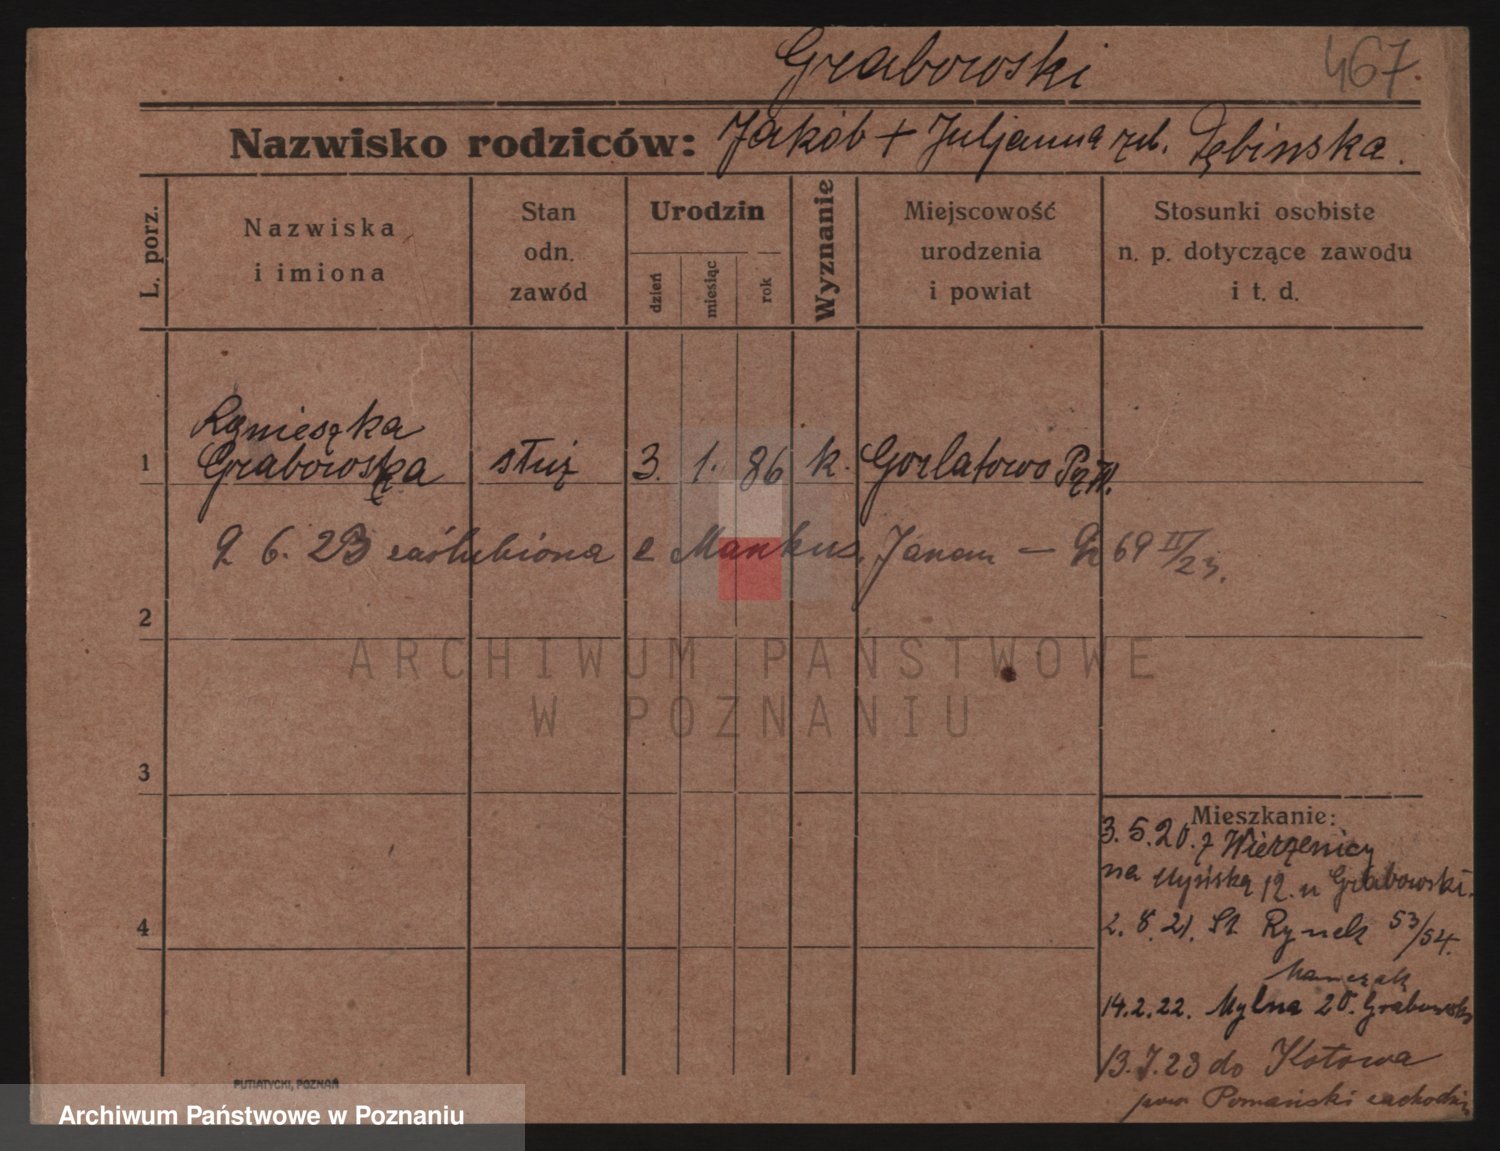 Grabowski
467.
Nazwisko rodziców: Jakób + Juljanna rdz. Dębinska.
L. porz.
Nazwiska
i imiona
Stan
odn.
zawód
Urodzin
dzień
miesiąc
rok
Wyznanie
Miejscowość
urodzenia
i powiat
Stosunki osobiste
n. p. dotyczące zawodu
i t. d.
Agnieszka
1 Grabowska służ 3. 1. 86 k. Gorlatowo
6. 23 zaślubiona z Mankus, Janem — 69 IV/23.
2
ARCHIWUM PAŃSTWOWE
W POZNANIU
3
Mieszkanie:
3.5.20. z Wierzenicy
na 12. u Grabowski.
4
2. 8. 21. St. Rynek 53/54.
14.2.22. Mylna 20. Grabowski
13.I.23 do Kotowa
pow Poznański zachodni
PUTIATYCKI, POZNAŃ
Archiwum Państwowe w Poznaniu